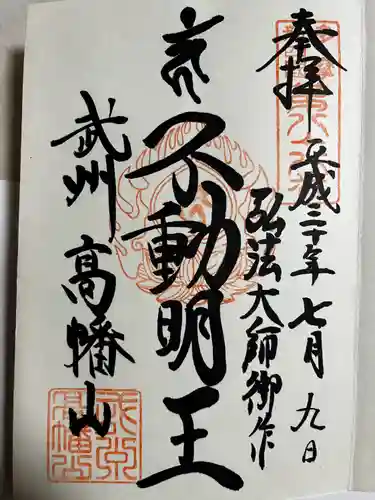 奉拝
平成三十年七月九日
弘法大師御作
不動明王
武州
高幡山